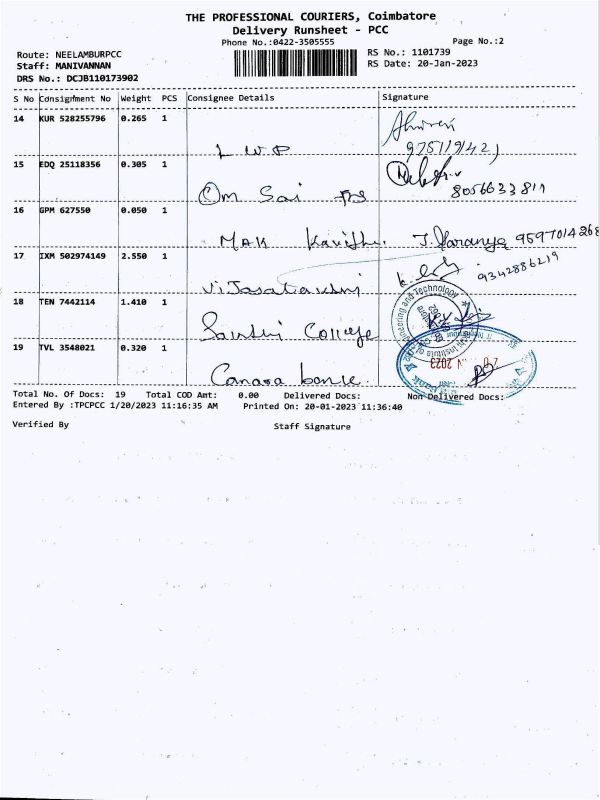 THE PROFESSIONAL COURIERS, Coimbatore
Delivery Runsheet - PCC
Phone No.:0422-3505555
Page No.:2
Route: NEELAMBURPCC
RS No.: 1101739
Staff: MANIVANNAN
RS Date: 20-Jan-2023
DRS No.: DCJB110173902
S No Consignment No Weight PCS Consignee Details Signature
14 KUR 528255796 0.265 1
L W P
15 EDQ 25118356 0.305 1
Om Sai
8056633811
16 GPM 627550 0.050 1
MAK
9597014268
17 IXM 502974149 2.550 1
9342886219
18 TEN 7442114 1.410 1
College
19 TVL 3548021 0.320 1
Canara
Total No. Of Docs: 19 Total COD Amt: 0.00 Delivered Docs: Non Delivered Docs:
Entered By :TPCPCC 1/20/2023 11:16:35 AM Printed On: 20-01-2023 11:36:40
Verified By Staff Signature